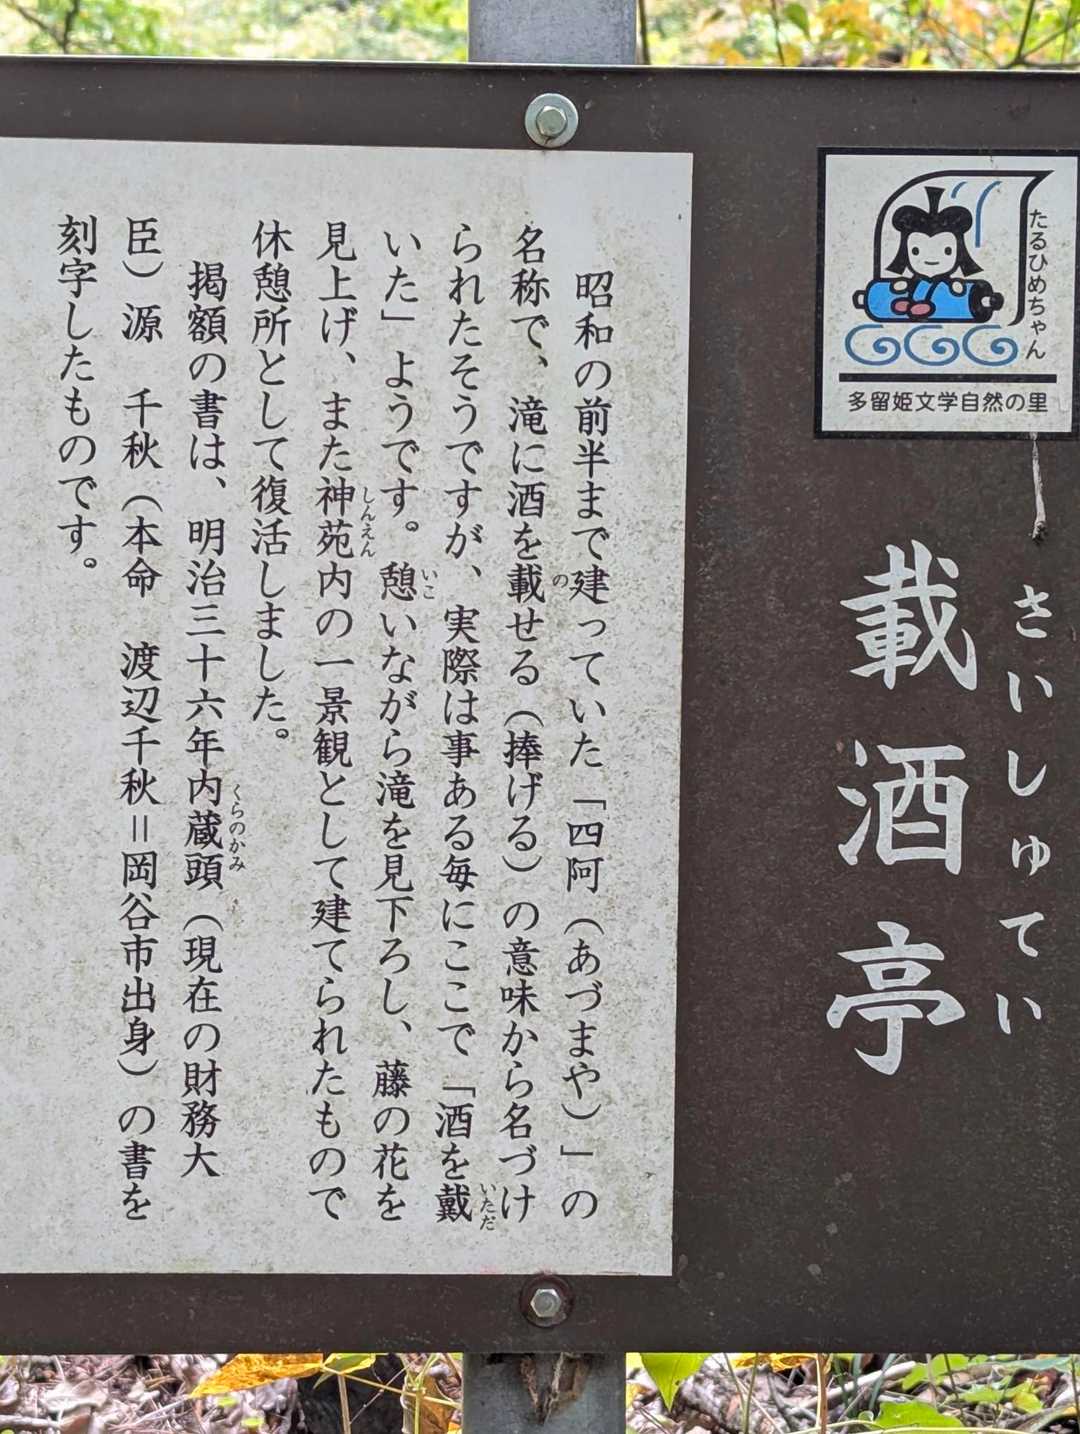 たるひめちゃん
多留姫文学自然の里
さいしゅてい
載酒亭
昭和の前半まで建っていた「四阿（あづまや）」の
名称で、滝に酒を載せる（捧げる）の意味から名づけ
の
られたそうですが、実際は事ある毎にここで「酒を戴
いただ
いた」ようです。憩いながら滝を見下ろし、藤の花を
いこ
見上げ、また神苑内の一景観として建てられたもので
しんえん
休憩所として復活しました。
掲額の書は、明治三十六年内蔵頭（現在の財務大
くらのかみ
臣）源　千秋（本命　渡辺千秋＝岡谷市出身）の書を
刻字したものです。